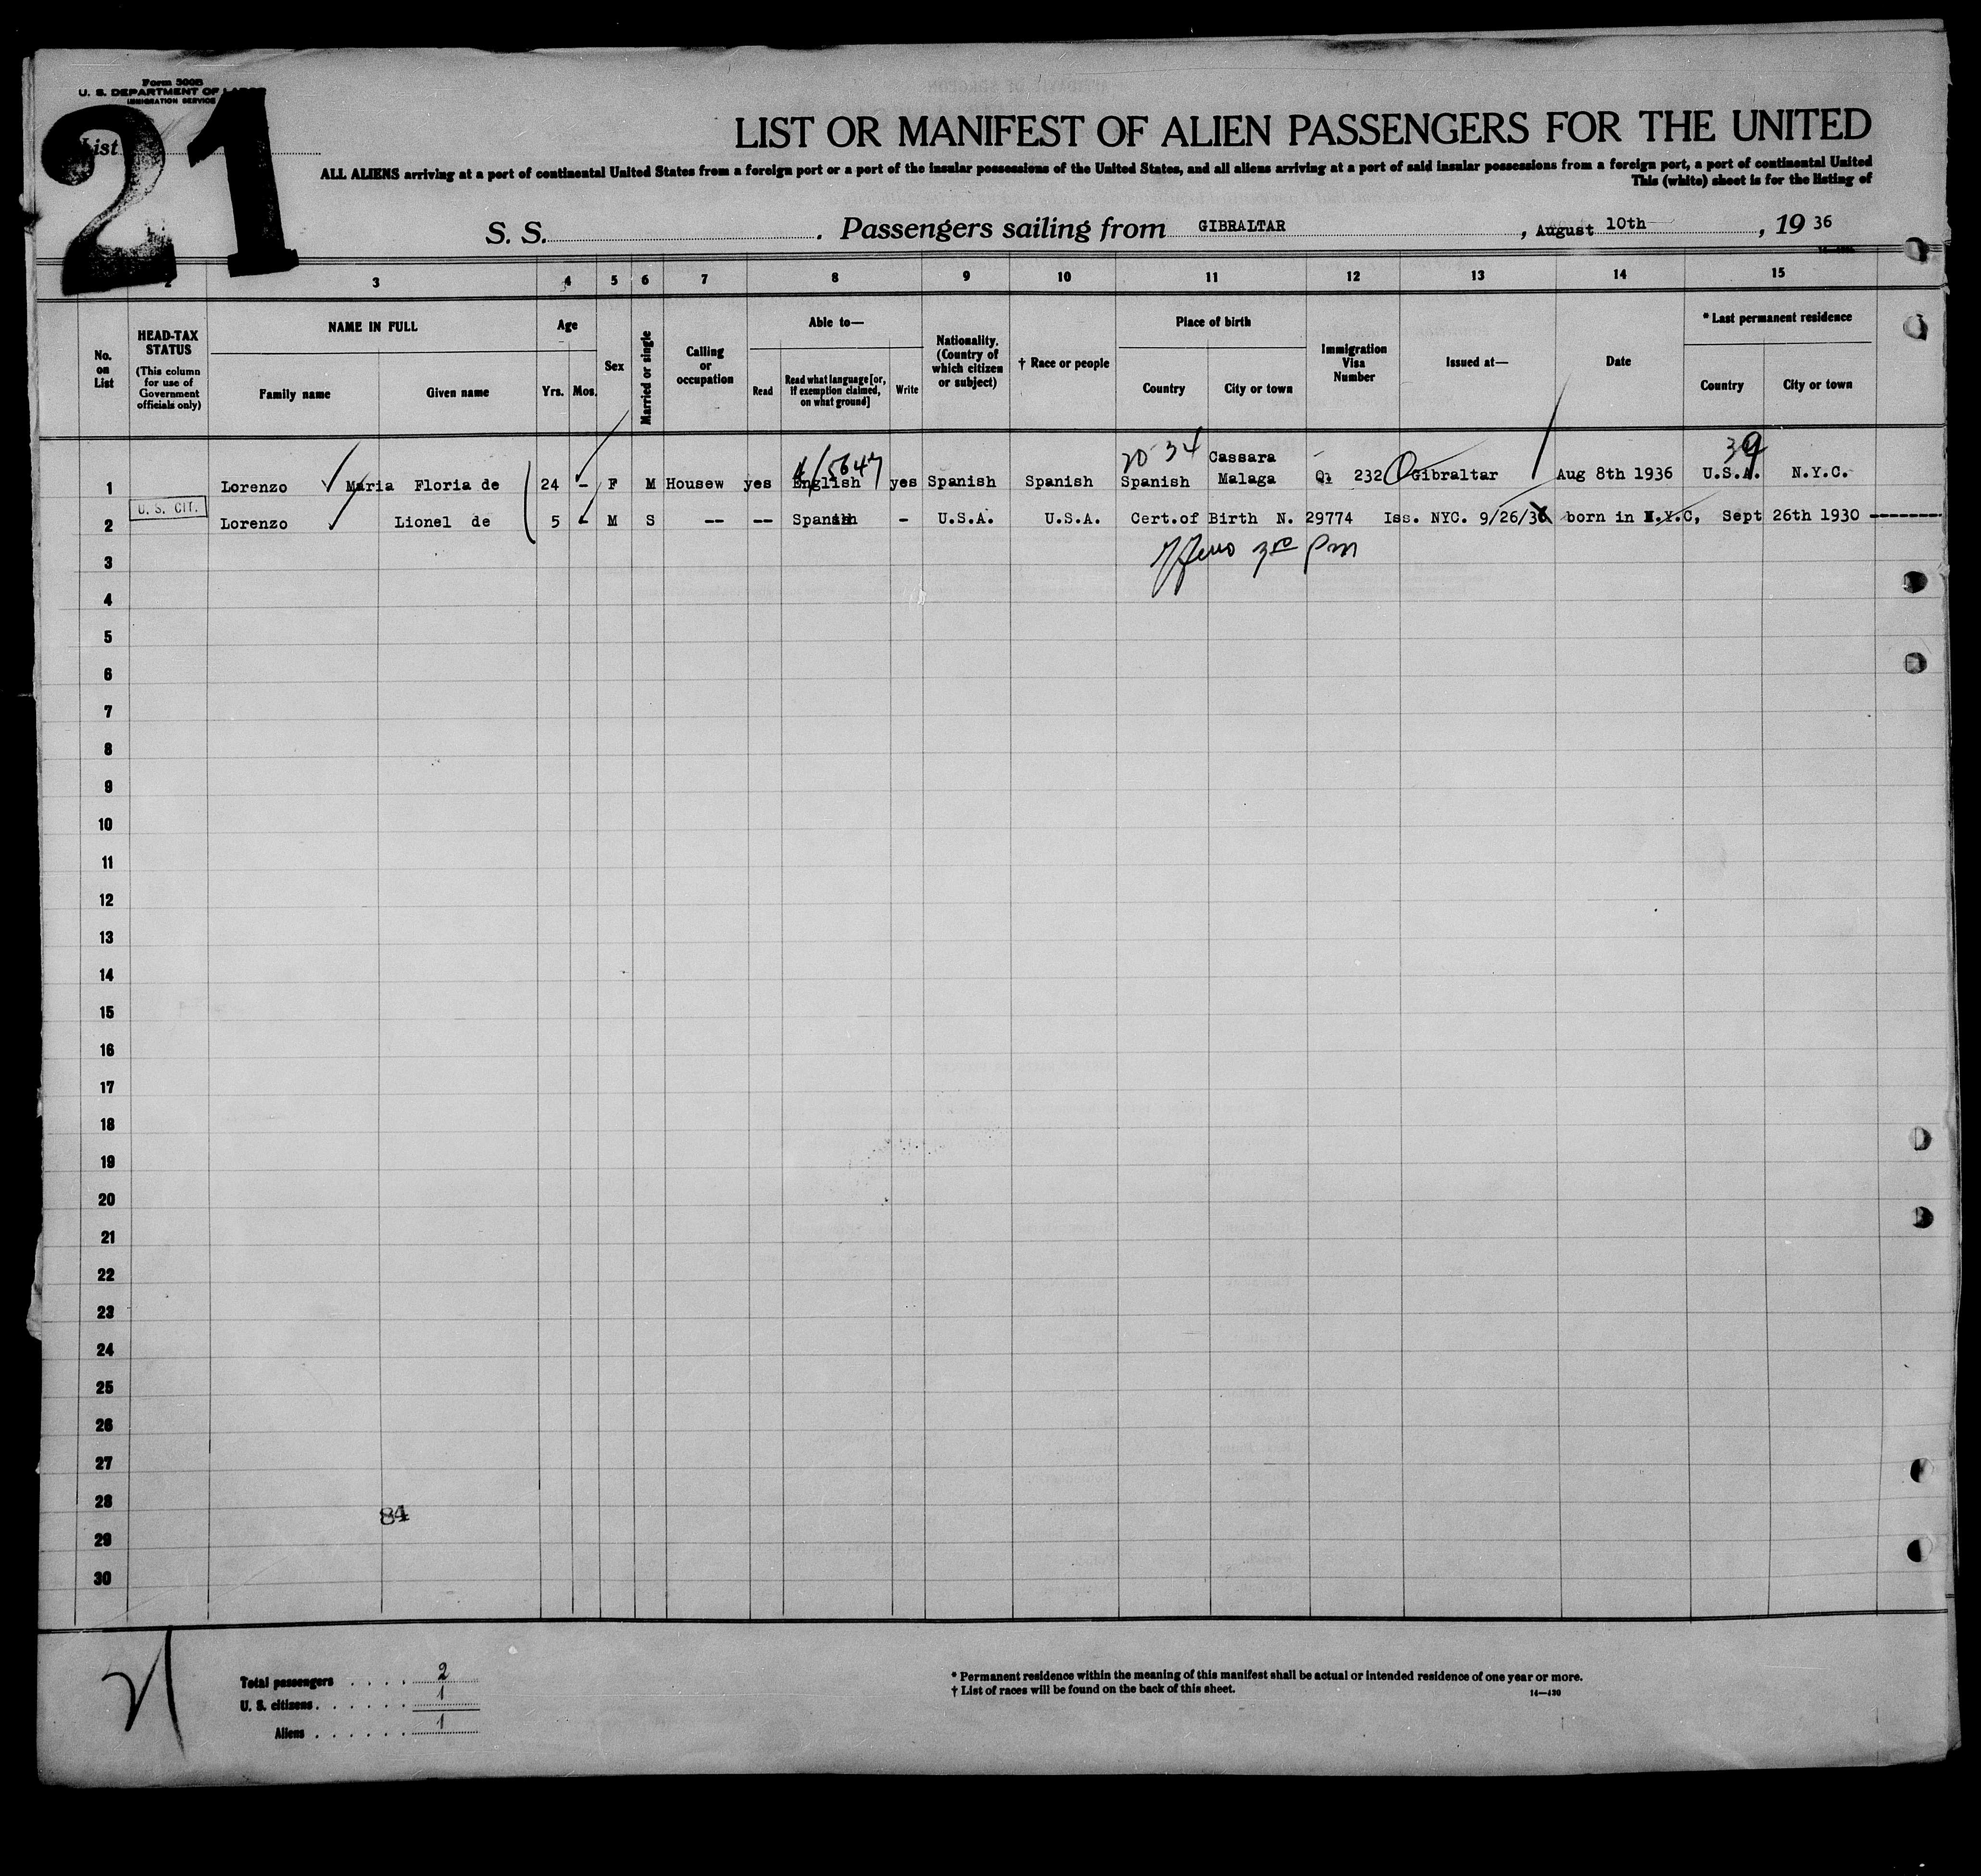 Form 500B
U. S. DEPARTMENT OF LABOR
IMMIGRATION SERVICE
21
List
LIST OR MANIFEST OF ALIEN PASSENGERS FOR THE UNITED
ALL ALIENS arriving at a port of continental United States from a foreign port or a port of the insular possessions of the United States, and all aliens arriving at a port of said insular possessions from a foreign port, a port of continental United
This (white) sheet is for the listing of
S. S. . Passengers sailing from GIBRALTAR , August 10th , 19 36
2 3 4 5 6 7 8 9 10 11 12 13 14 15
No. on List
HEAD-TAX STATUS
(This column for use of Government officials only)
NAME IN FULL
Family name Given name
Age
Yrs. Mos.
Sex
Married or single
Calling or occupation
Able to—
Read Read what language [or, if exemption claimed, on what ground] Write
Nationality. (Country of which citizen or subject)
† Race or people
Place of birth
Country City or town
Immigration Visa Number
Issued at—
Date
* Last permanent residence
Country City or town
20-34 Cassara 39
1 Lorenzo Maria Floria de 24 - F M Housew yes English yes Spanish Spanish Spanish Malaga 232 Gibraltar Aug 8th 1936 U.S.A. N.Y.C.
U. S. CIT.
2 Lorenzo Lionel de 5 - M S -- -- Spanish - U.S.A. U.S.A. Cert.of Birth N. 29774 Iss. NYC. 9/26/36 born in N.Y.C, Sept 26th 1930 -------
3
4
5
6
7
8
9
10
11
12
13
14
15
16
17
18
19
20
21
22
23
24
25
26
27
28
84
29
30
21
Total passengers . . . . 2
U. S. citizens . . . . . . 1
Aliens . . . . . . 1
* Permanent residence within the meaning of this manifest shall be actual or intended residence of one year or more.
† List of races will be found on the back of this sheet.
14—430